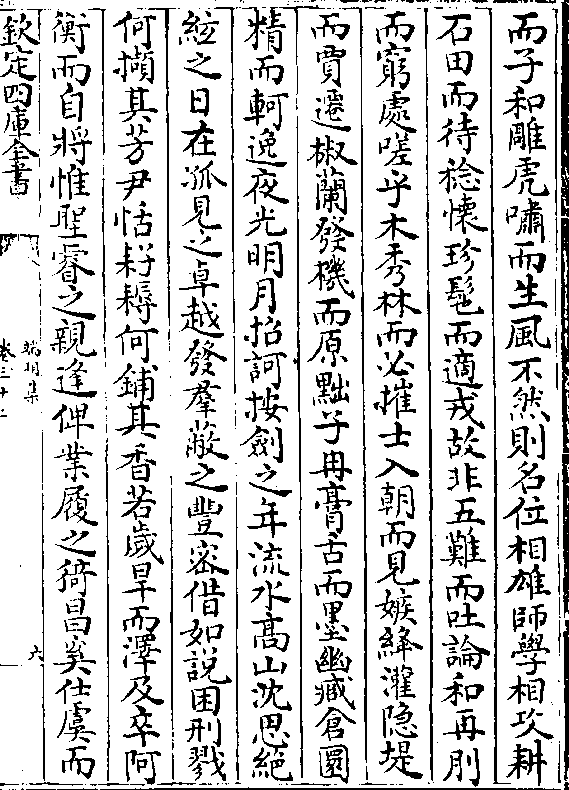 而子和雕虎嘯而生風不然則名位相雄師學相攻耕
石田而待稔懷珍髢而適戎故非五難而吐論和再刖
而窮處嗟乎木秀林而必摧士入朝而見嫉絳灌隐堤
而賈遷椒蘭發機而原黜子冉膏舌而墨幽臧倉圜
精而軻逸夜光明月招訶按劍之年流水髙山沈思絶
絃之日在孤見之卓越發羣蔽之豐宻借如説困刑戮
何擷其芳尹恬耔耨何鋪其香若歲旱而澤及卒阿
衡而自將惟聖睿之親逢俾業履之猗昌奚仕虞而
欽定四庫全書
端明集
卷三十二
六